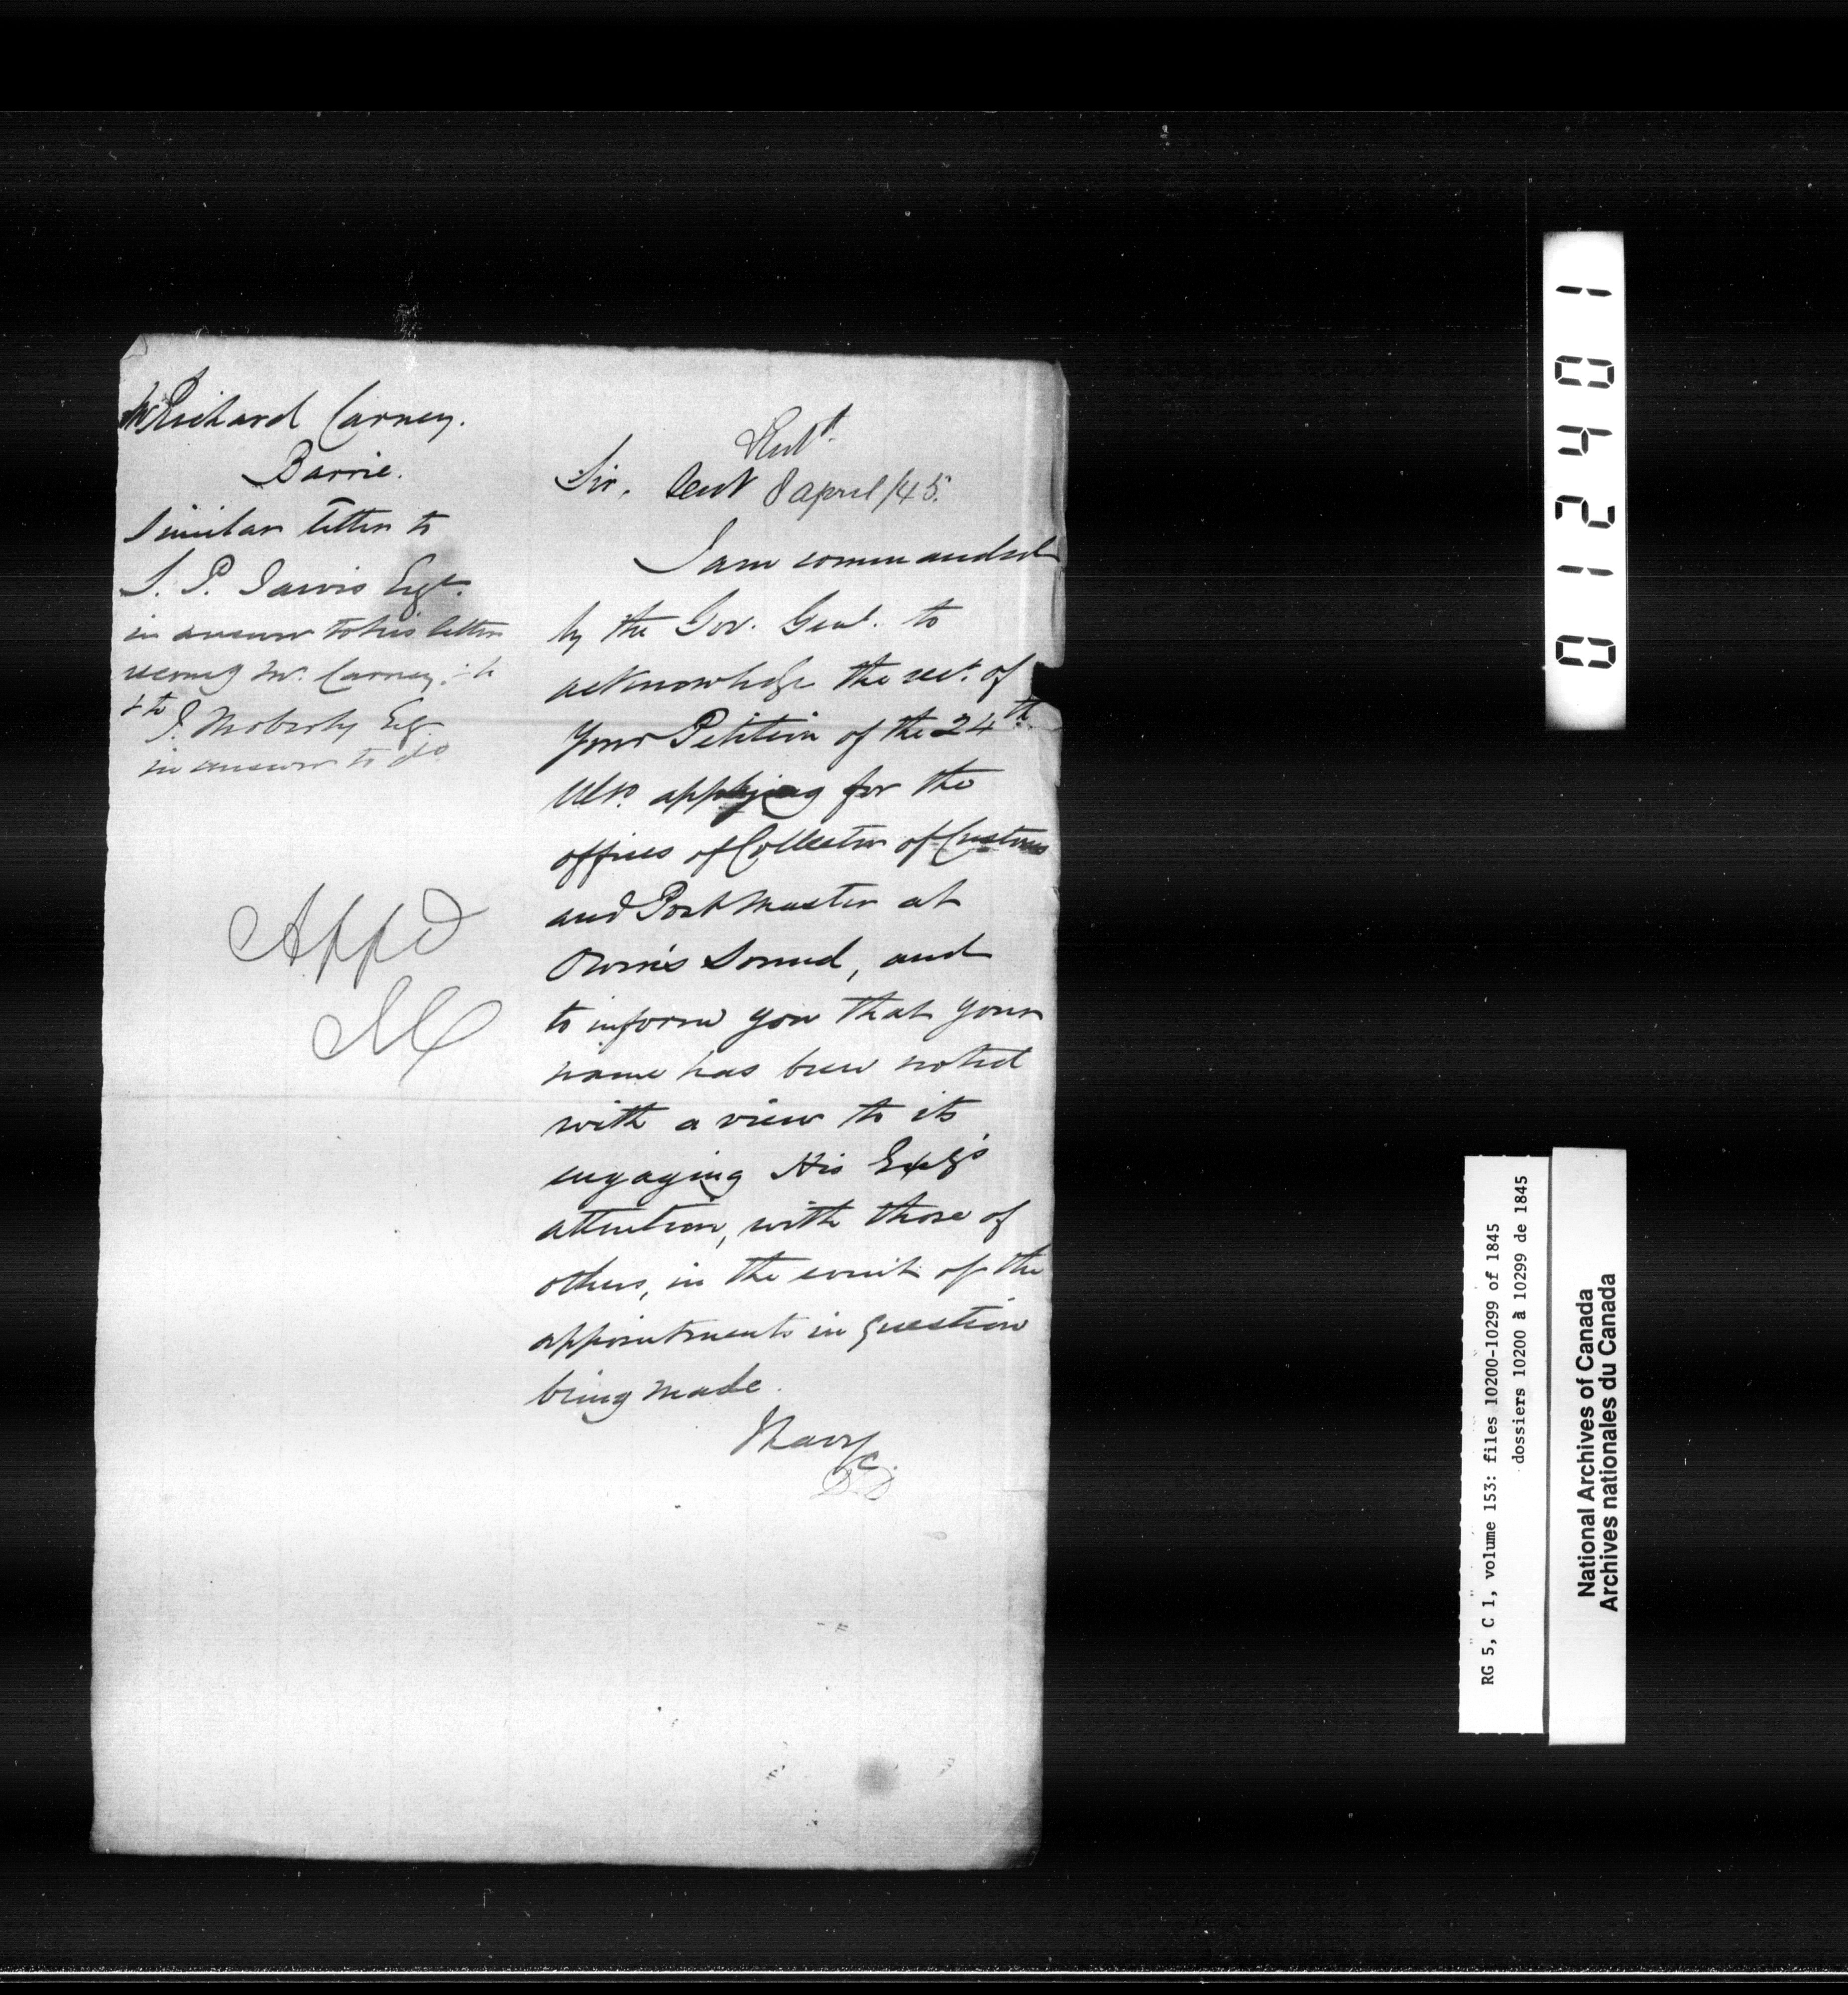 Mr Richard Carney.
Barrie.
Similar letter to
S. P. Jarvis Esqr.
in answer to his letter
recomg Mr. Carney.
& to J. Moberly Esq.
in answer to do
Appd
Sir. Sent 8 april /45.
I am commanded
by the Gov. Genl. to
acknowledge the rect. of
your Petition of the 24th
Ulto. applying for the
offices of Collector of Customs
and Post Master at
Owen's Sound, and
to inform you that your
name has been noted
with a view to its
engaging His Exy's
attention, with those of
others, in the event of the
appointments in question
being made.
I have &c.
0 1 2 4 0 1
RG 5, C 1, volume 153: files 10200-10299 of 1845
dossiers 10200 à 10299 de 1845
National Archives of Canada
Archives nationales du Canada